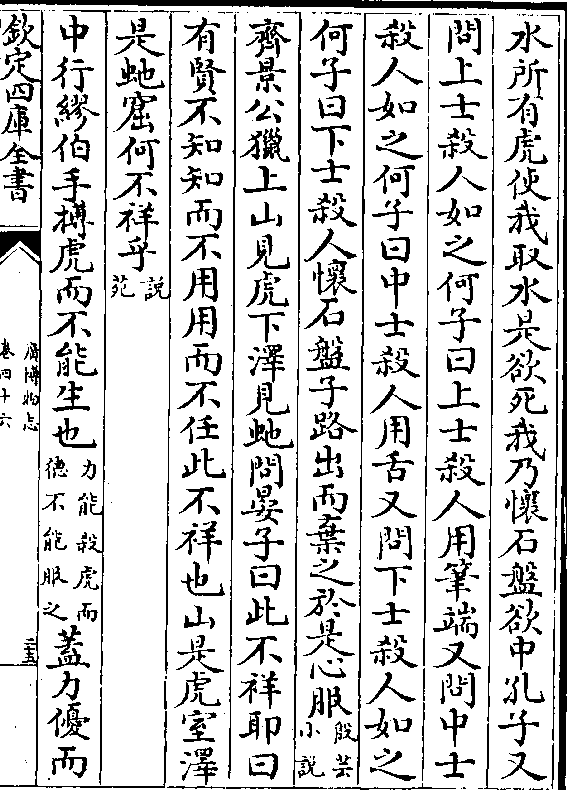 水所有虎使我取水是欲死我乃懷石盤欲中孔子又
問上士殺人如之何子曰上士殺人用筆端又問中士
殺人如之何子曰中士殺人用舌又問下士殺人如之
何子曰下士殺人懷石盤子路出而棄之於是心服殷芸小說
齊景公獵上山見虎下澤見虵問晏子曰此不祥耶曰
有賢不知知而不用用而不任此不祥也山是虎室澤
是虵窟何不祥乎說苑
中行繆伯手搏虎而不能生也力能殺虎而德不能服之蓋力優而
欽定四庫全書
廣博物志
卷四十六
二十五